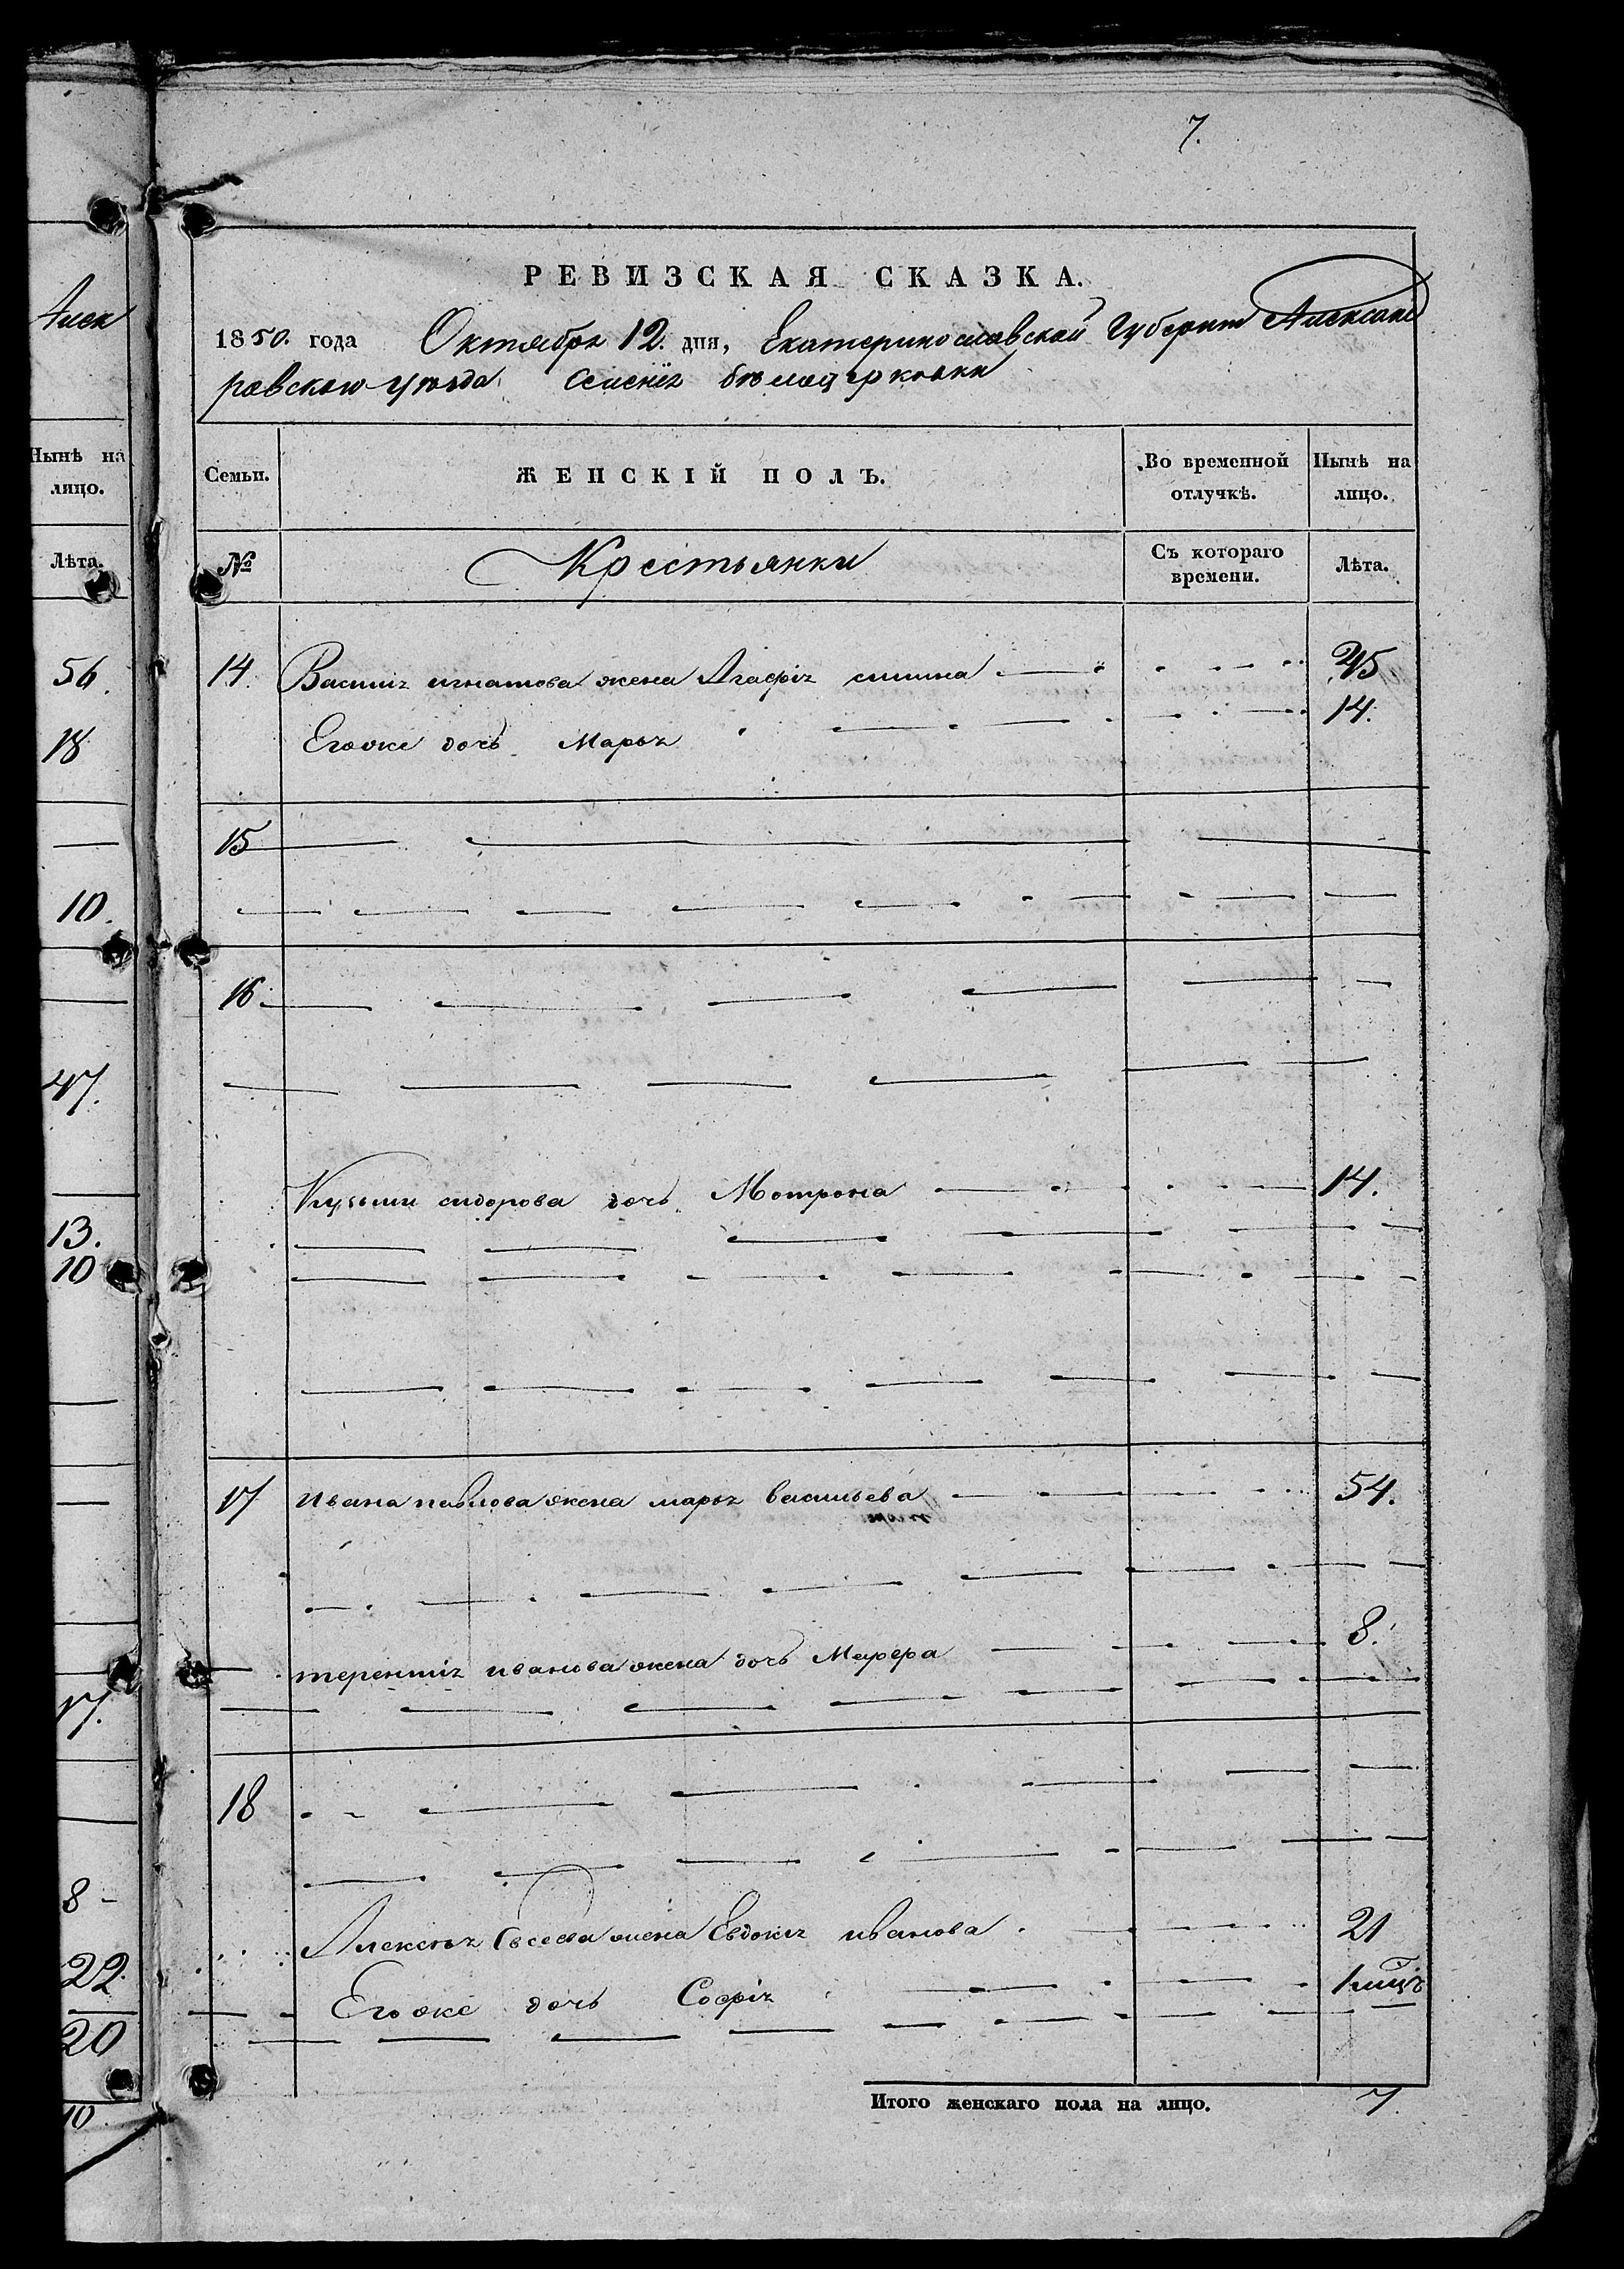 7.
РЕВИЗСКАЯ СКАЗКА.
1850. года Октября 12. дня, Екатеринославской Губернии Александ
ровского уѣзда Селенія бѣлоцерковки
Семьи. ЖЕНСКІЙ ПОЛЪ. Во временной отлучкѣ. Нынѣ на лицо.
№ Крестьянки Съ котораго времени. Лѣта.
14. Василія игнатова жена Агафія 45
Егоже дочь Марья 14.
15
16.
Кузьми сидорова дочь Мотрона 14.
17 Ивана павлова жена марья васильева 54.
терентія иванова жена дочь Марфа 8.
18
Алексѣя Евсеева жена Евдокія иванова 21
Егоже дочь Софія 1 мц
Итого женскаго пола на лицо. 7
Алек
Нынѣ на
лицо.
Лѣта.
56.
18
10.
47.
13.
10
17.
8
22
20
10